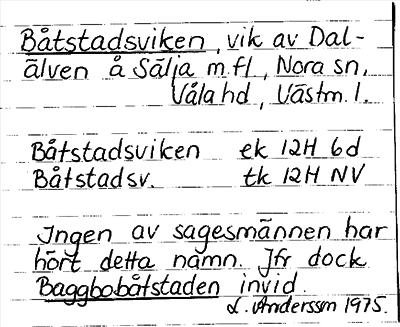 Båtstadsviken, vik av Dal-
älven å Sälja m.fl, Nora sn,
Våla hd, Västm. l.
Båtstadsviken ek 12H 6d
Båtstadsv. tk 12H NV
Ingen av sagesmännen har
hört detta namn. Jfr dock
Baggbobåtstaden invid.
L. Andersson 1975.